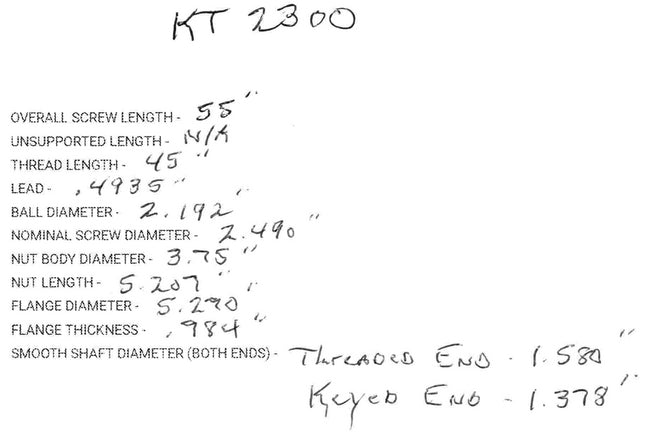 KT 2300
OVERALL SCREW LENGTH - 55"
UNSUPPORTED LENGTH - N/A
THREAD LENGTH - 45"
LEAD - .4935"
BALL DIAMETER - 2.192"
NOMINAL SCREW DIAMETER - 2.490"
NUT BODY DIAMETER - 3.75"
NUT LENGTH - 5.207"
FLANGE DIAMETER - 5.290"
FLANGE THICKNESS - .984"
SMOOTH SHAFT DIAMETER (BOTH ENDS) - THREADED END - 1.580"
KEYED END - 1.378"